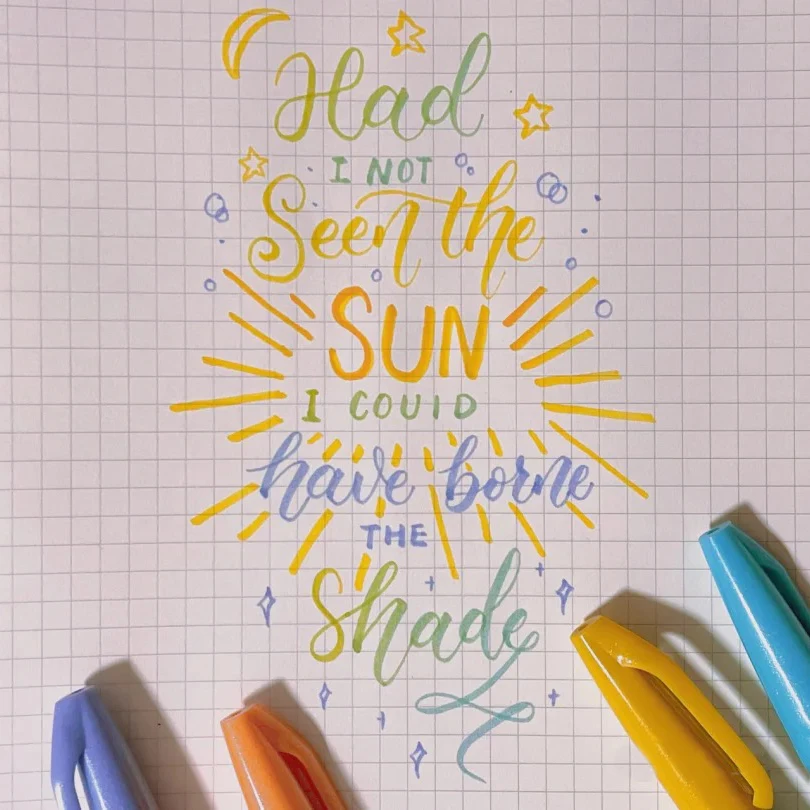 Had
I NOT
Seen the
SUN
I COUID
have borne
THE
Shade